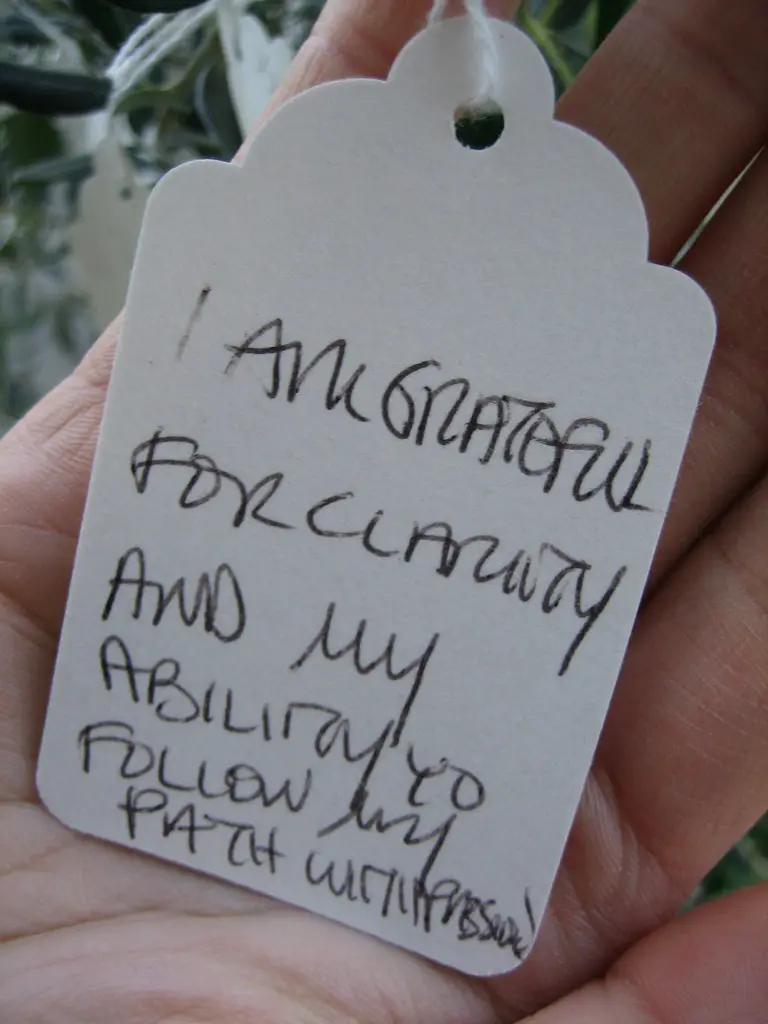 I AM GRATEFUL
FOR CLARITY
AND MY
ABILITY TO
FOLLOW MY
PATH WITH PASSION